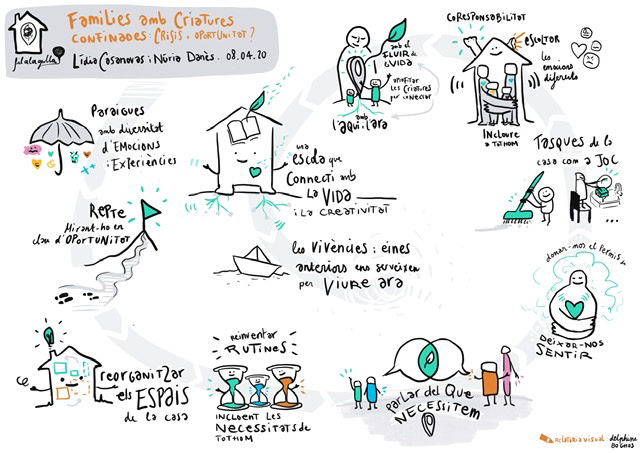 Famílies amb Criatures
confinades: Crisi o oportunitat?
Lídia Casanovas i Núria Danés. 08.04.20
Paraigues
amb diversitat
d'Emocions
i Experiències
una
escola que
Connecti amb
La VIDA
i LA CREATIVITAT
amb el
FLUIR de
la VIDA
aprofitar
les Criatures
per connectar
amb
l'aquí i l'ara
CORESPONSABILITAT
ESCOLTAR
les
emocions
difícils
Incloure
a TOTHOM
Tasques de la
casa com a JOC
REPTE
Mirant-ho en
clau d'OPORTUNITAT
les Vivències i eines
anteriors ens serveixen
per VIURE ara
donar-nos el permís de
DEIXAR-NOS
SENTIR
reorganitzar
els ESPAIS
de la casa
reinventar
RUTINES
INCLOENT LES
NECESSITATS de
TOTHOM
PARLAR del Que
NECESSITEM
relatoria visual
delphine
boghos